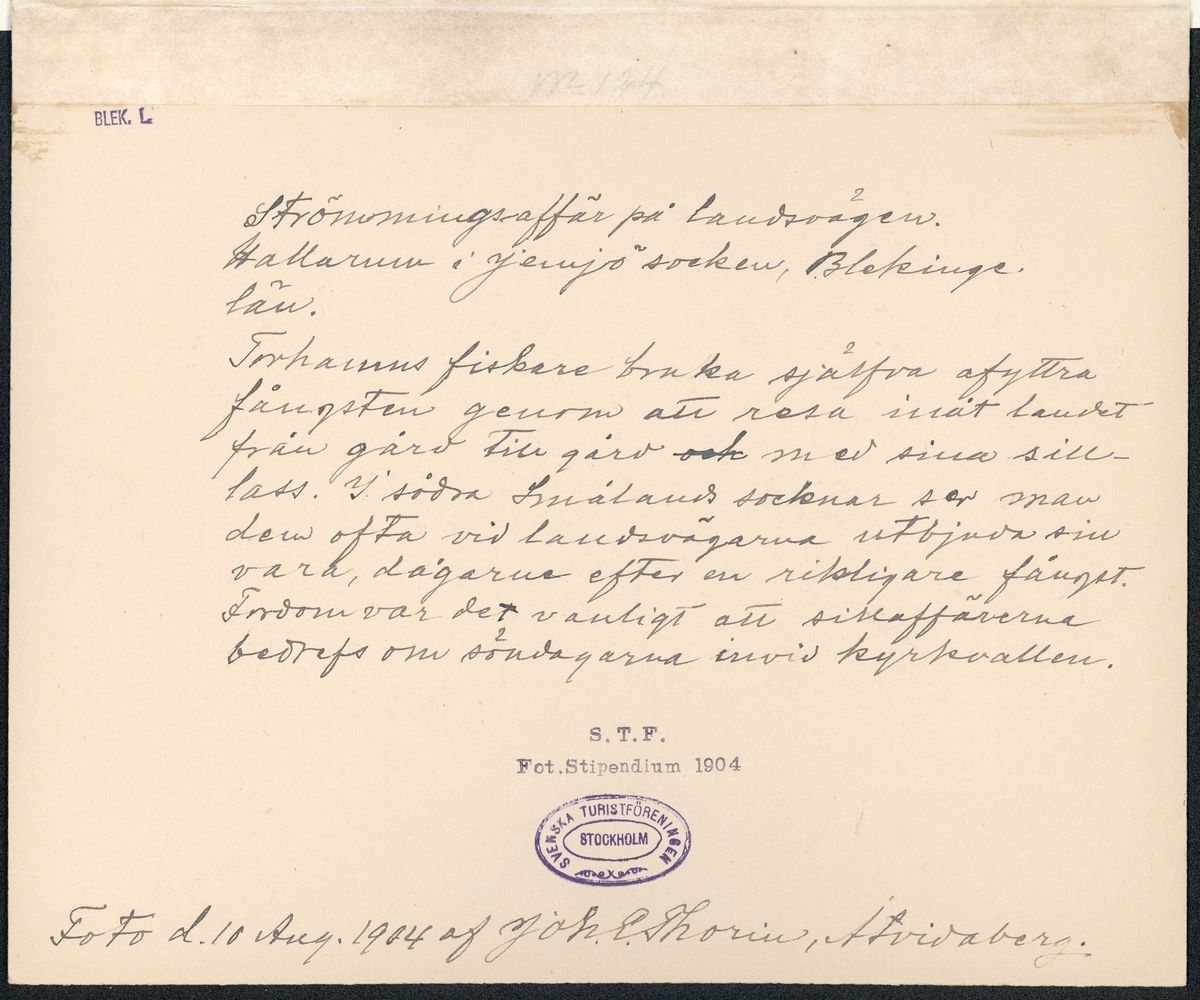 No 124
BLEK. L
Strömmingsaffär på landsvägen.
Hallarum i Jemjö socken, Blekinge
län.
Torhamns fiskare bruka själfva afyttra
fångsten genom att resa inåt landet
från gård till gård och med sina sill-
lass. I södra Smålands socknar ser man
dem ofta vid landsvägarna utbjuda sin
vara, dagarne efter en rikligare fångst.
Fordom var det vanligt att sillaffärerna
bedrefs om söndagarna invid kyrkvallen.
S.T.F.
Fot.Stipendium 1904
SVENSKA TURISTFÖRENINGEN
STOCKHOLM
Foto d. 10 Aug. 1904 af Joh. E. Thorin, Åtvidaberg.